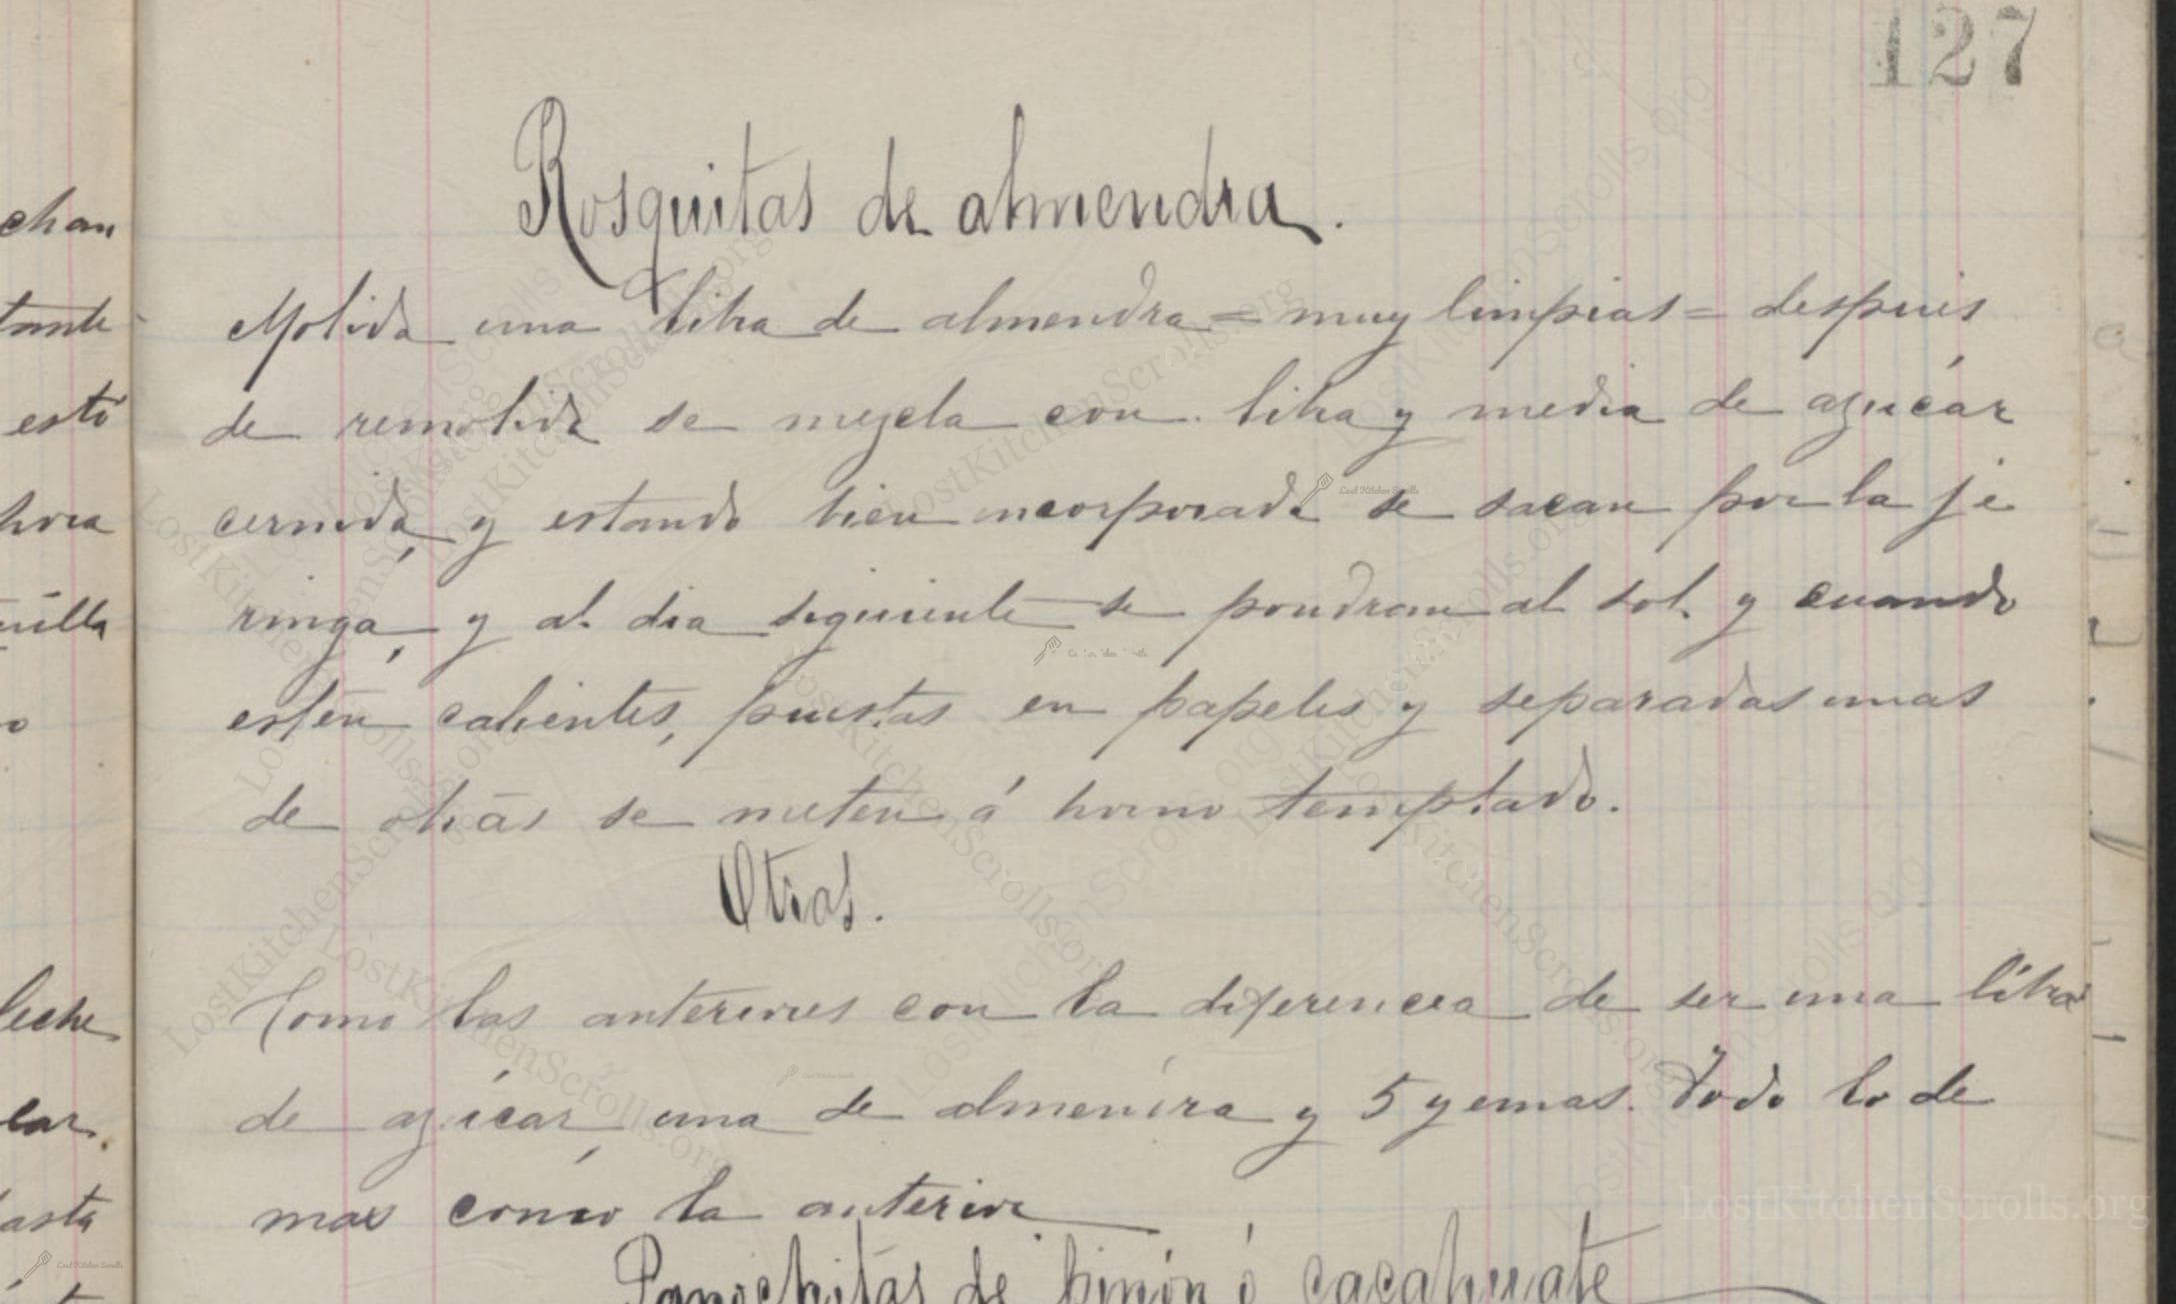 127
Rosquitas de almendra.
Molida una libra de almendra = muy limpias = despues
de remolida se mezcla con libra y media de azucár
cernida, y estando bien incorporada se sacan por la je
ringa, y al dia siguiente se pondran al sol y cuando
esten calientes, puestas en papeles y separadas unas
de otras se meten á horno templado.
Otras.
Como las anteriores con la diferencia de ser una libra
de azúcar, una de almendra y 5 yemas. Todo lo de
mas como la anterior
Panochitas de piñón ó cacahuate
chan
tante
esto
hora
leche
car.
asta
LostKitchenScrolls.org